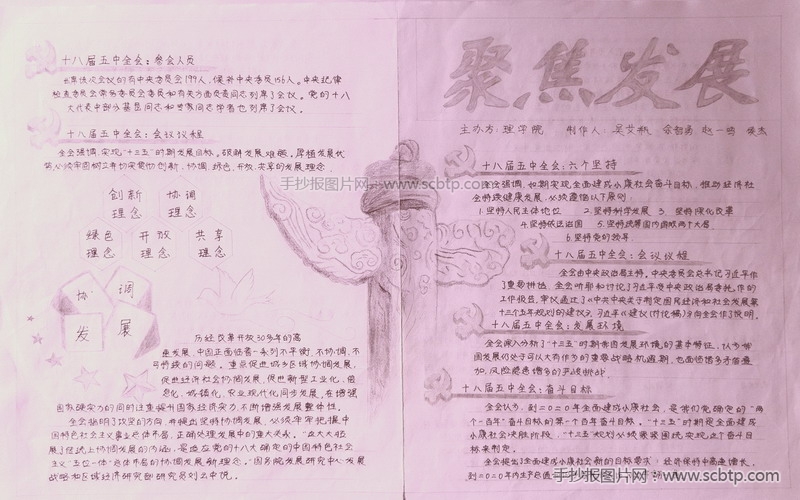 十八届五中全会：参会人员
出席这次会议的有中央委员会199人，候补中央委员156人。中央纪律
检查委员会常务委员会委员和有关方面负责同志列席了会议。党的十八
大代表中部分基层同志和专家学者也列席了会议。
十八届五中全会：会议议程
全会强调，实现"十三五"时期发展目标，破解发展难题，厚植发展优
势，必须牢固树立并切实贯彻创新、协调、绿色、开放、共享的发展理念
创新 协调
理念 理念
绿色 开放 共享
理念 理念 理念
协 调
发 展
历经改革开放30多年的高
速发展，中国正面临着一系列不平衡、不协调、不
可持续的问题。重点促进城乡区域协调发展，
促进经济社会协调发展，促进新型工业化、信
息化、城镇化、农业现代化同步发展，在增强
国家硬实力的同时注重提升国家软实力，不断增强发展整体性。
全会指明了攻坚的方向，并提出坚持协调发展，必须牢牢把握中
国特色社会主义事业总体布局，正确处理发展中的重大关系。
手抄报图片网-www.scbtp.com
聚焦发展
主办方：理学院 制作人：
十八届五中全会：六个坚持
全会强调，如期实现全面建成小康社会奋斗目标，推动经济社
会持续健康发展，必须遵循以下原则：
1.坚持人民主体地位 2.坚持科学发展 3.坚持深化改革
4.坚持依法治国 5.坚持统筹国内国际两个大局
6.坚持党的领导
十八届五中全会：会议议程
全会由中央政治局主持，中央委员会总书记习近平作
了重要讲话。全会听取和讨论了习近平受中央政治局委托作的
工作报告，审议通过了《中共中央关于制定国民经济和社会发展第
十三个五年规划的建议》。习近平就《建议（讨论稿）》向全会作了说明。
十八届五中全会：发展环境
全会深入分析了"十三五"时期我国发展环境的基本特征，认为我
国发展仍处于可以大有作为的重要战略机遇期，也面临诸多矛盾叠
加、风险隐患增多的严峻挑战。
十八届五中全会：奋斗目标
全会认为，到二〇二〇年全面建成小康社会，是我们党确定的"两
个一百年"奋斗目标的第一个百年奋斗目标。"十三五"时期是全面建成
小康社会决胜阶段，"十三五"规划必须紧紧围绕实现这个奋斗目
标来制定。
全会提出了全面建成小康社会新的目标要求：经济保持中高速增长，
手抄报图片网-www.scbtp.com